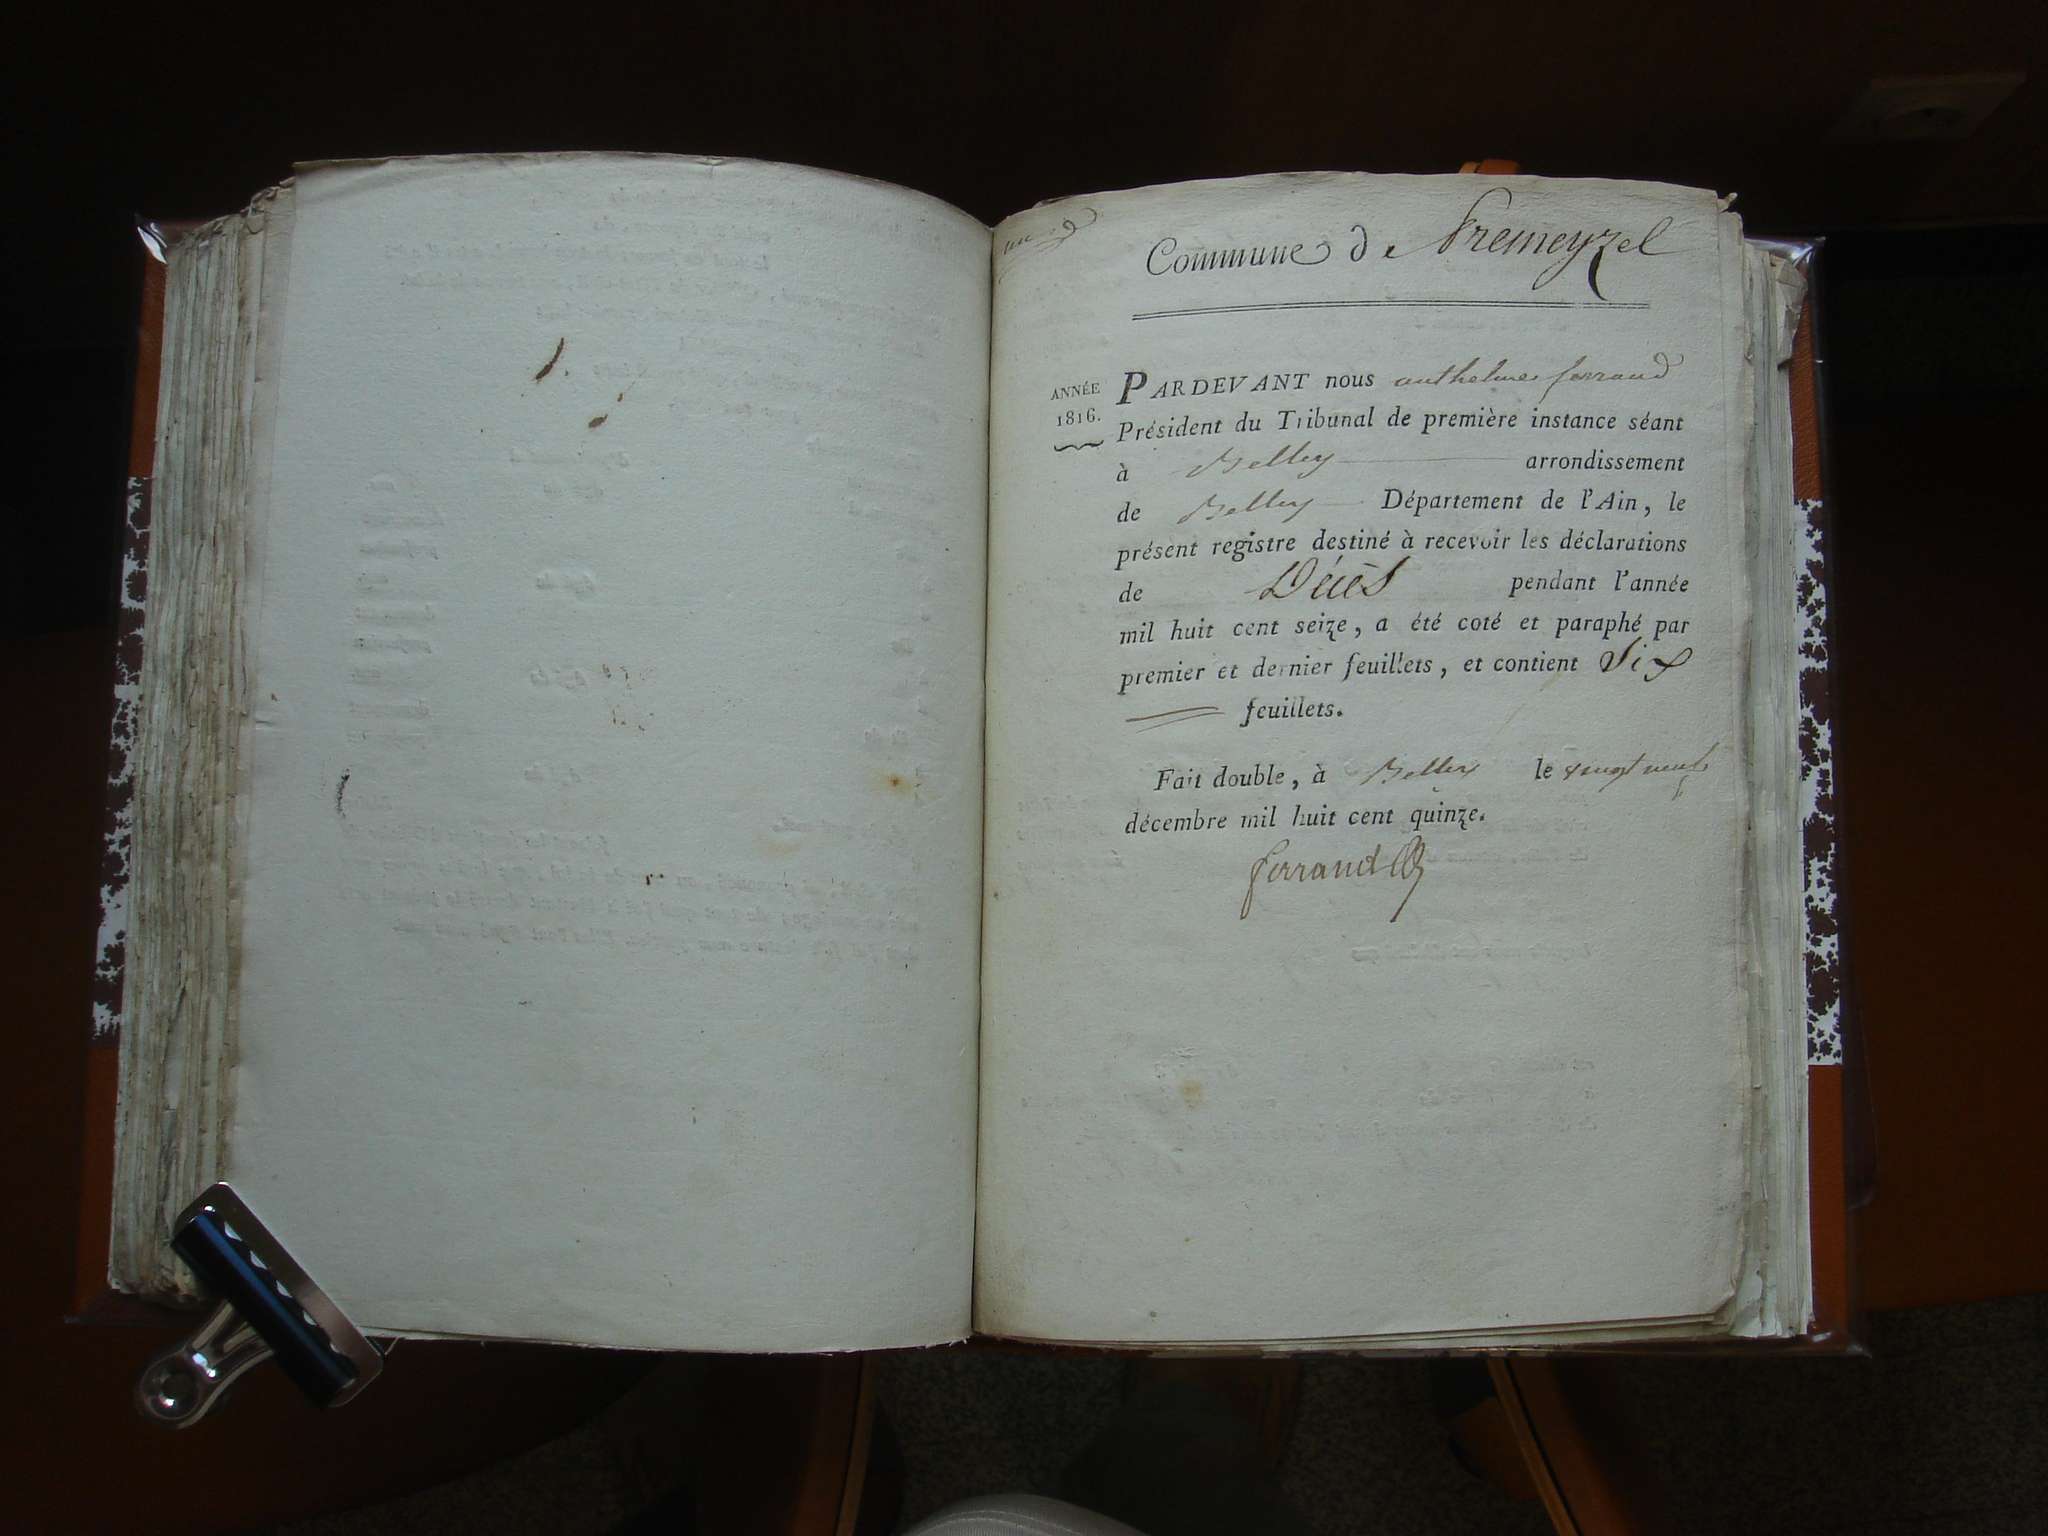 Commune de Premeyzel
ANNÉE
1816.
PARDEVANT nous anthelme ferrand
Président du Tribunal de première instance séant
à Belley arrondissement
de Belley Département de l'Ain, le
présent registre destiné à recevoir les déclarations
de Décès pendant l'année
mil huit cent seize, a été coté et paraphé par
premier et dernier feuillets, et contient Six
feuillets.
Fait double, à Belley le vingt neuf
décembre mil huit cent quinze.
ferrand